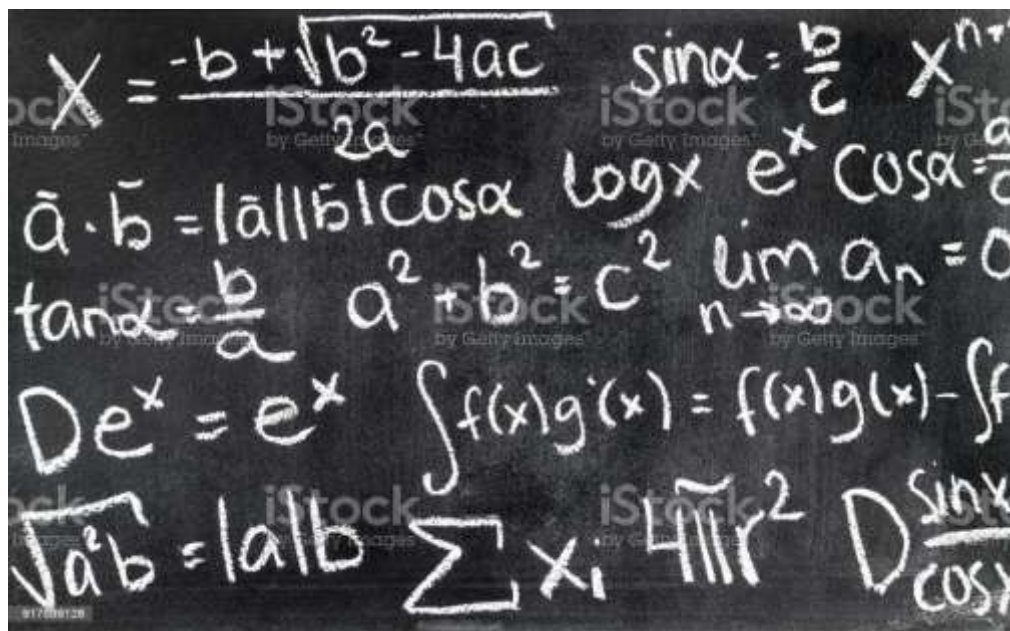 X = -b + √b² - 4ac / 2a sinα = b/c xⁿ⁺
ā · b̄ = |ā||b̄|cosα logx eˣ cosα = a/c
tanα = b/a a² + b² = c² lim n→∞ aₙ = 0
Deˣ = eˣ ∫f(x)g'(x) = f(x)g(x) - ∫f
√a²b = |a|b ∑ xᵢ 4πr² D sinx/cosx
iStock
by Getty Images™